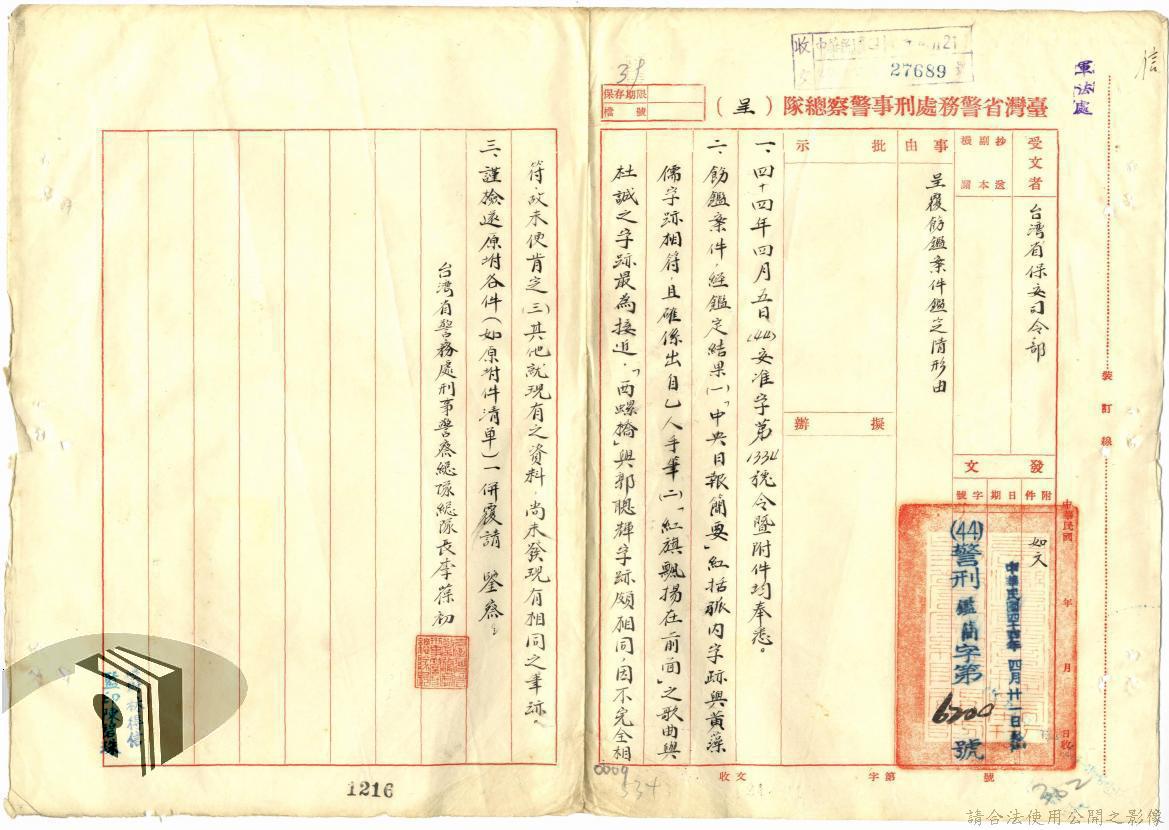 信
軍法處
27689
臺灣省警務處刑事警察總隊（呈）
保存期限
檔號
受文者
台灣省保安司令部
事由
呈覆飭鑑案件鑑定情形由
批示
擬辦
發文
附件
日期
字號
如文
中華民國四十四年四月廿一日發
(44)警刑鑑簡字第6200號
中華民國 年 月 日收
裝訂線
一、四十四年四月五日(44)安准字第1334號令暨附件均奉悉。
二、飭鑑案件，經鑑定結果(一)「中央日報簡要」紅括弧內字跡與黃藻
儒字跡相符且確係出自乙人手筆(二)「紅旗飄揚在前面」之歌曲與
杜誠之字跡最為接近，「西螺橋」與郭聰輝字跡頗相同，因不完全相
符，故未便肯定(三)其他就現有之資料，尚未發現有相同之筆跡。
三、謹檢還原附各件（如原附件清單）一併覆請 鑒察
台灣省警務處刑事警察總隊總隊長李葆初
收文 字第 號
0009
534
202
1216
請合法使用公開之影像